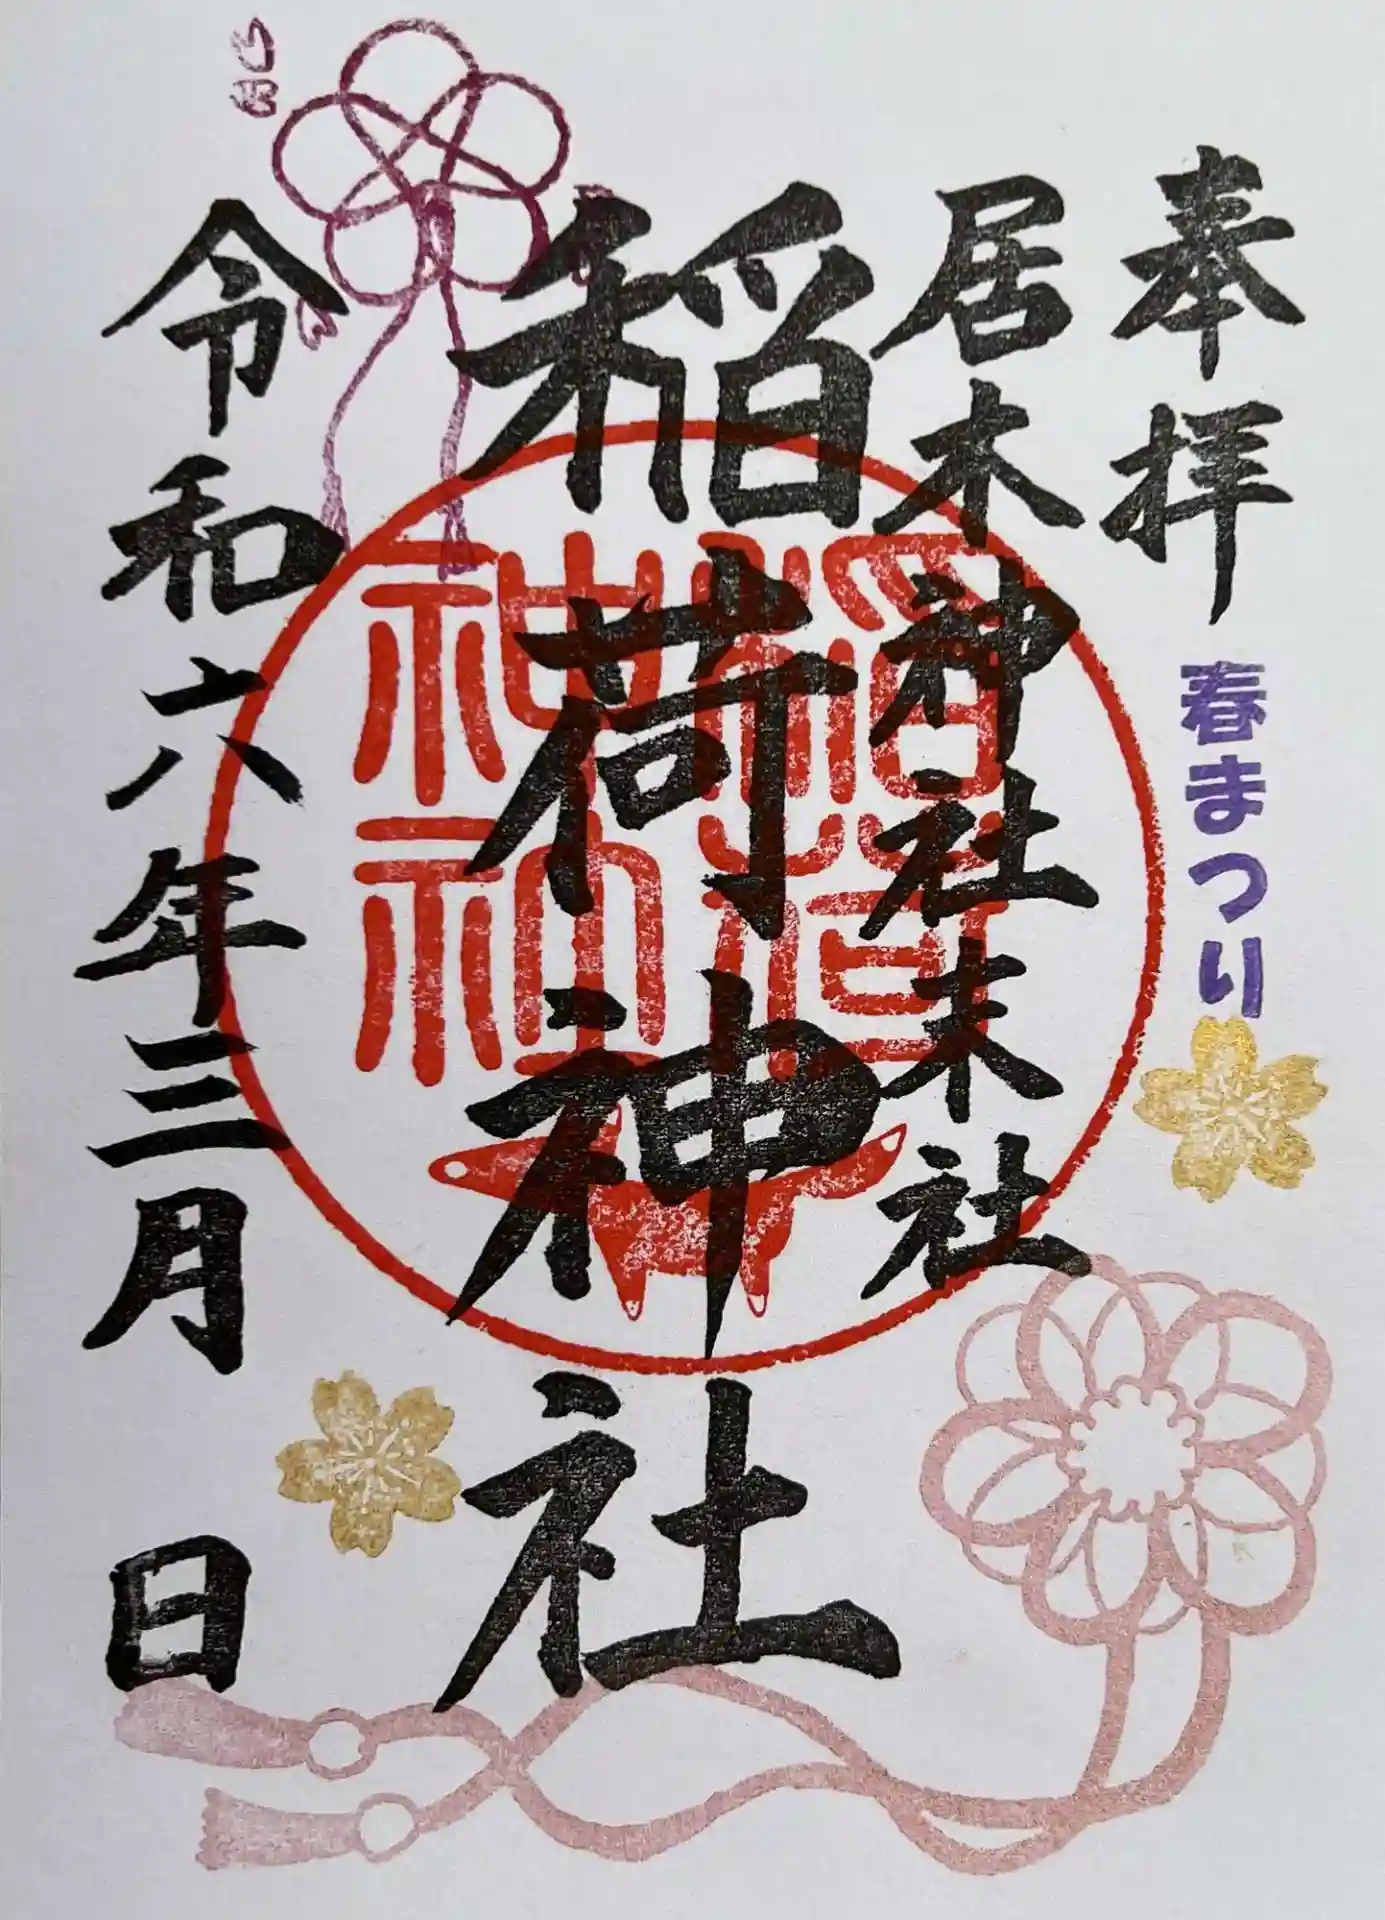 奉拝
春まつり
居木神社末社
稲荷神社
稲荷神社
令和六年三月 日